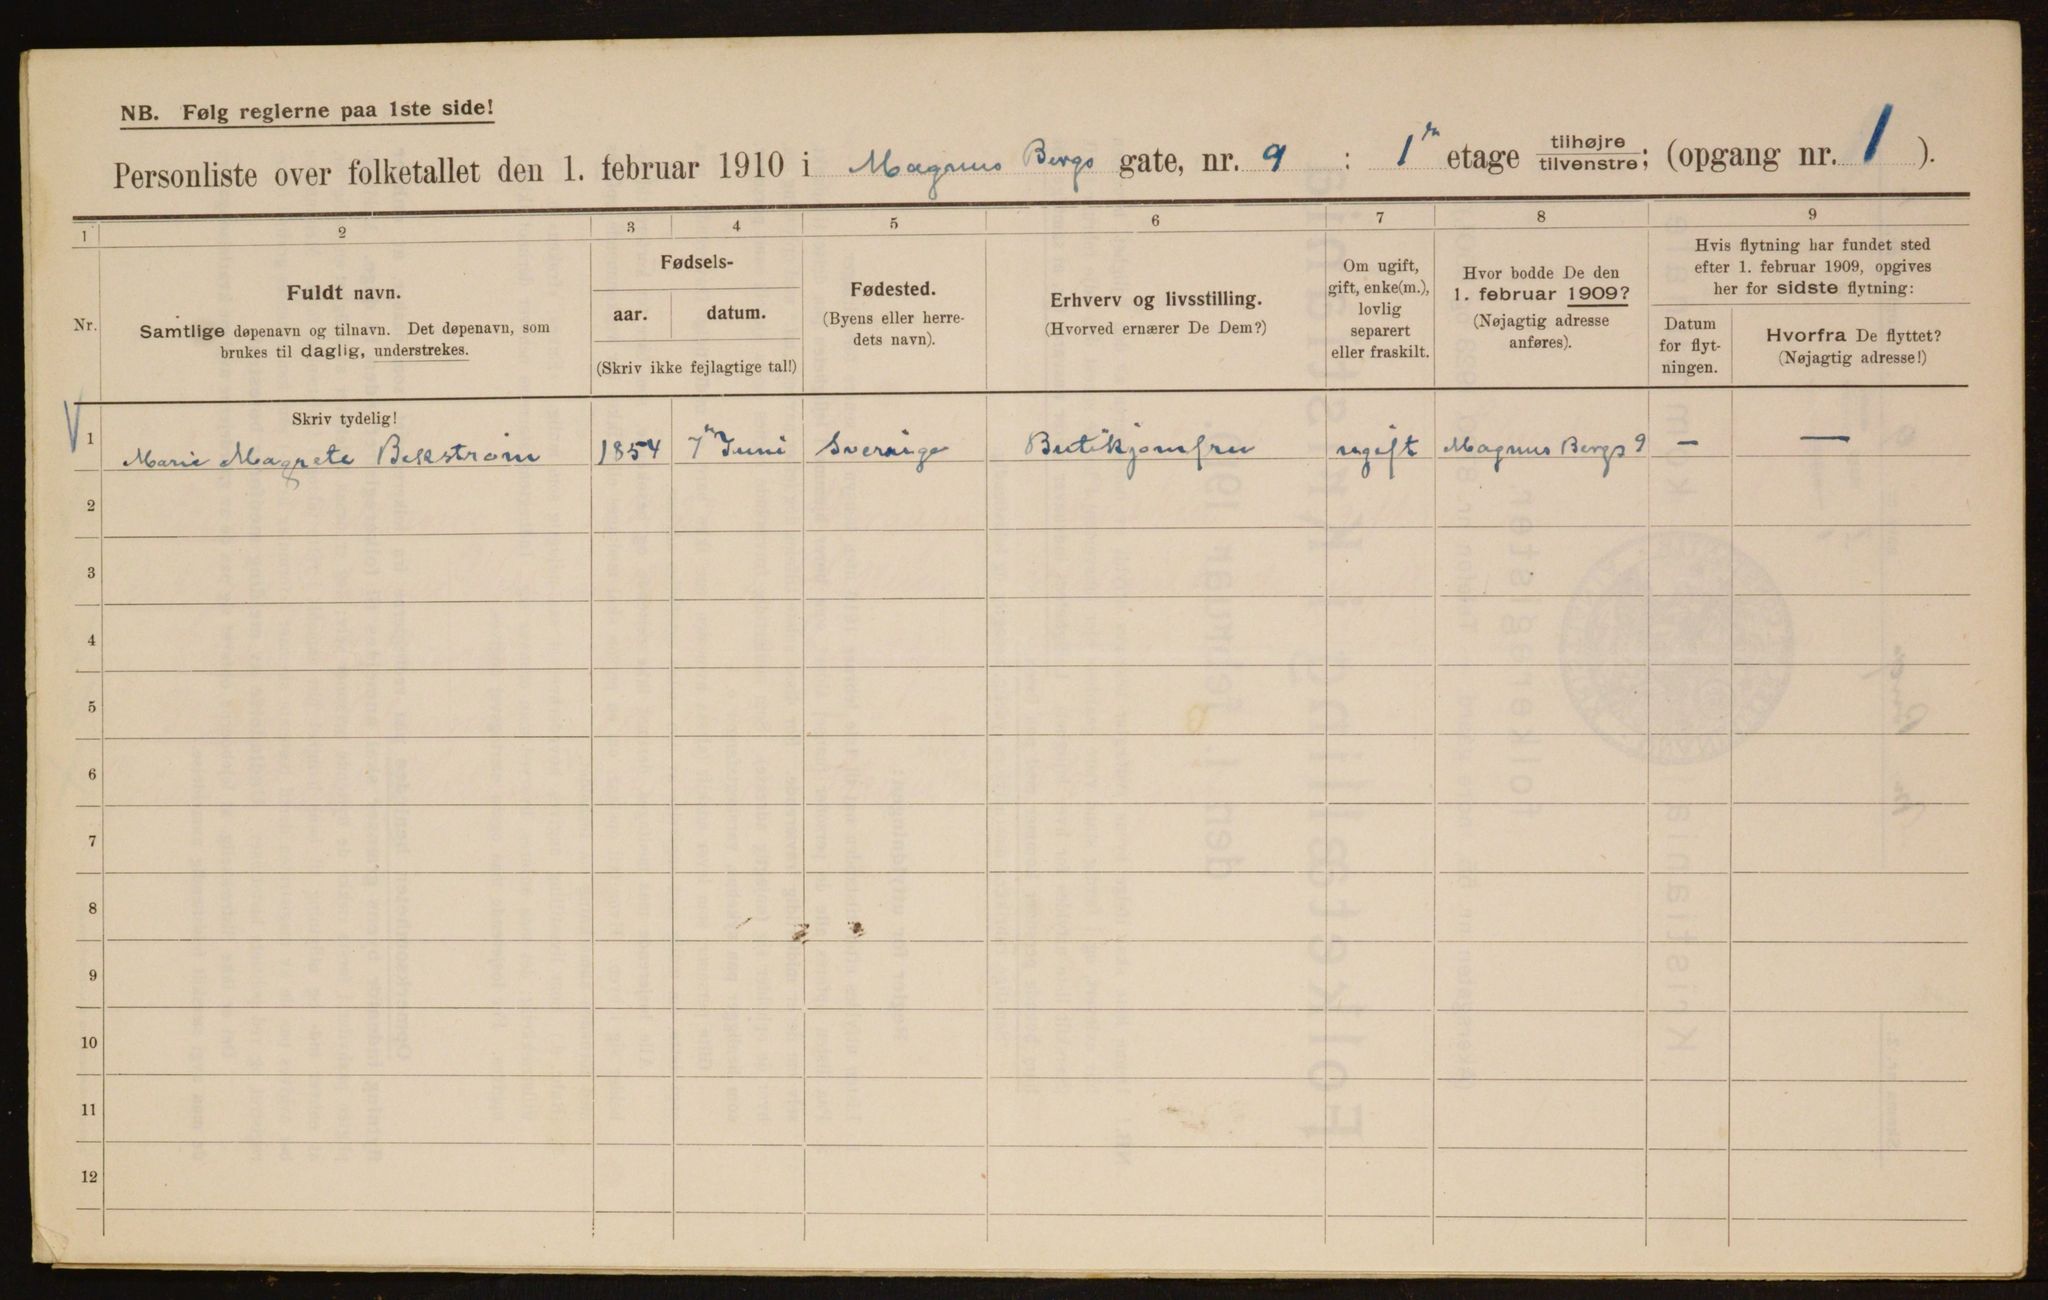 NB. Følg reglerne paa 1ste side!
Personliste over folketallet den 1. februar 1910 i Magnus Bergs gate, nr. 9 : 1ste etage tilhøjre tilvenstre; (opgang nr. 1 ).
1 2 3 4 5 6 7 8 9
Nr.
Fuldt navn.
Samtlige døpenavn og tilnavn. Det døpenavn, som
brukes til daglig, understrekes.
Fødsels-
aar. datum.
(Skriv ikke fejlagtige tal!)
Fødested.
(Byens eller herre-
dets navn).
Erhverv og livsstilling.
(Hvorved ernærer De Dem?)
Om ugift,
gift, enke(m.),
lovlig
separert
eller fraskilt.
Hvor bodde De den
1. februar 1909?
(Nøjagtig adresse
anføres).
Hvis flytning har fundet sted
efter 1. februar 1909, opgives
her for sidste flytning:
Datum
for flyt-
ningen.
Hvorfra De flyttet?
(Nøjagtig adresse!)
Skriv tydelig!
1 Marie Magnete Bekstrøm 1854 7de Juni Sverrige Butikjomfru ugift Magnus Bergs 9 — —
2
3
4
5
6
7
8
9
10
11
12